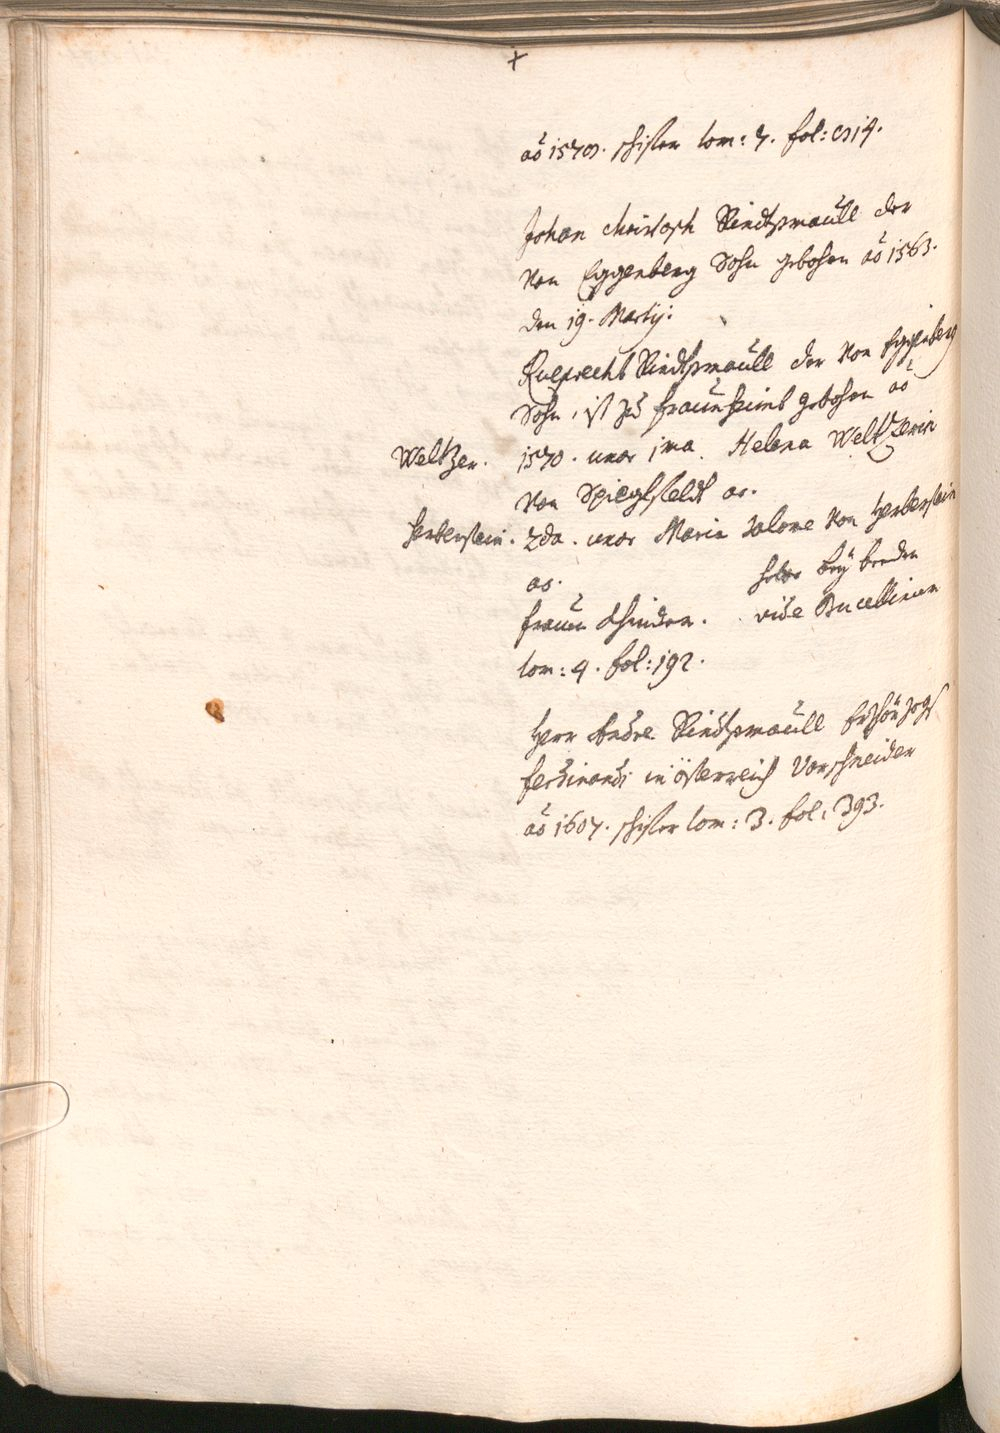 +
ao 1570. schifer tom: 7. fol: 214.
Johan christoph Rindtsmaull der
von Eggenberg Sohn gebohren ao 1563.
den 19. Martij:
Rueprecht Rindtsmaull der von Eggenberg
Sohn, ist zu frauenheimb gebohren ao
Weltzer. 1570. uxor 1ma. Helena Weltzerin
von Spieglfeldt ao.
herberstein. 2da. uxor Maria Salome von Herberstein
ao. habe beÿ beeden
frauen Khinder. vide Bucellinum
tom: 4. fol: 192.
Herr Andre Rindtsmaull Erzhörzogs
Ferdinandi in Österreich Vorschneider
ao 1607. schifer tom: 3. fol: 393.